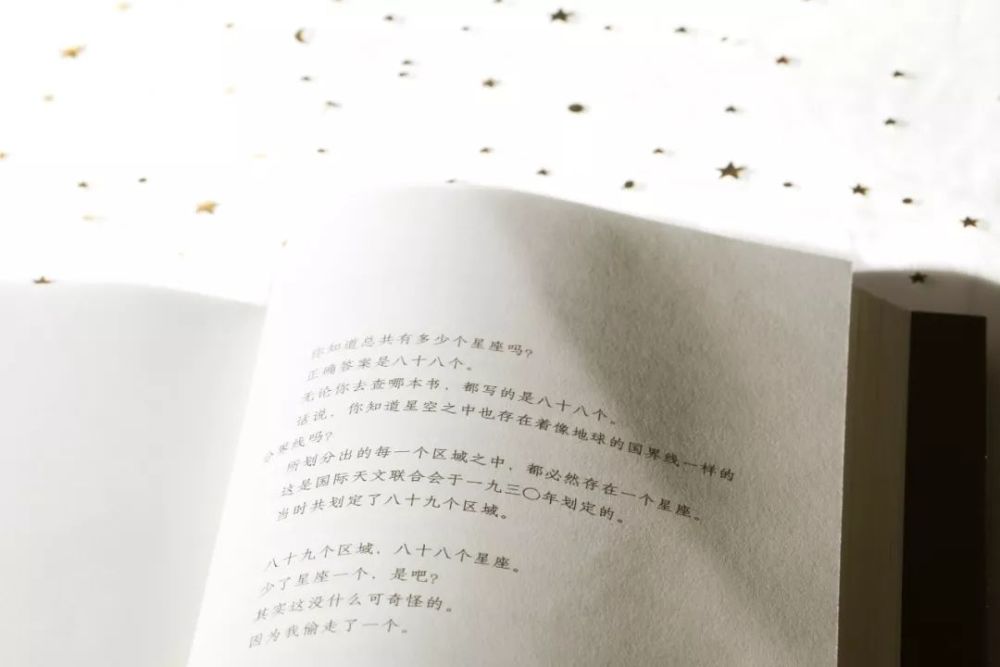 你知道总共有多少个星座吗？
正确答案是八十八个。
无论你去查哪本书，都写的是八十八个。
话说，你知道星空之中也存在着像地球的国界线一样的
分界线吗？
所划分出的每一个区域之中，都必然存在一个星座。
这是国际天文联合会于一九三〇年划定的。
当时共划定了八十九个区域。
八十九个区域，八十八个星座。
少了星座一个，是吧？
其实这没什么可奇怪的。
因为我偷走了一个。